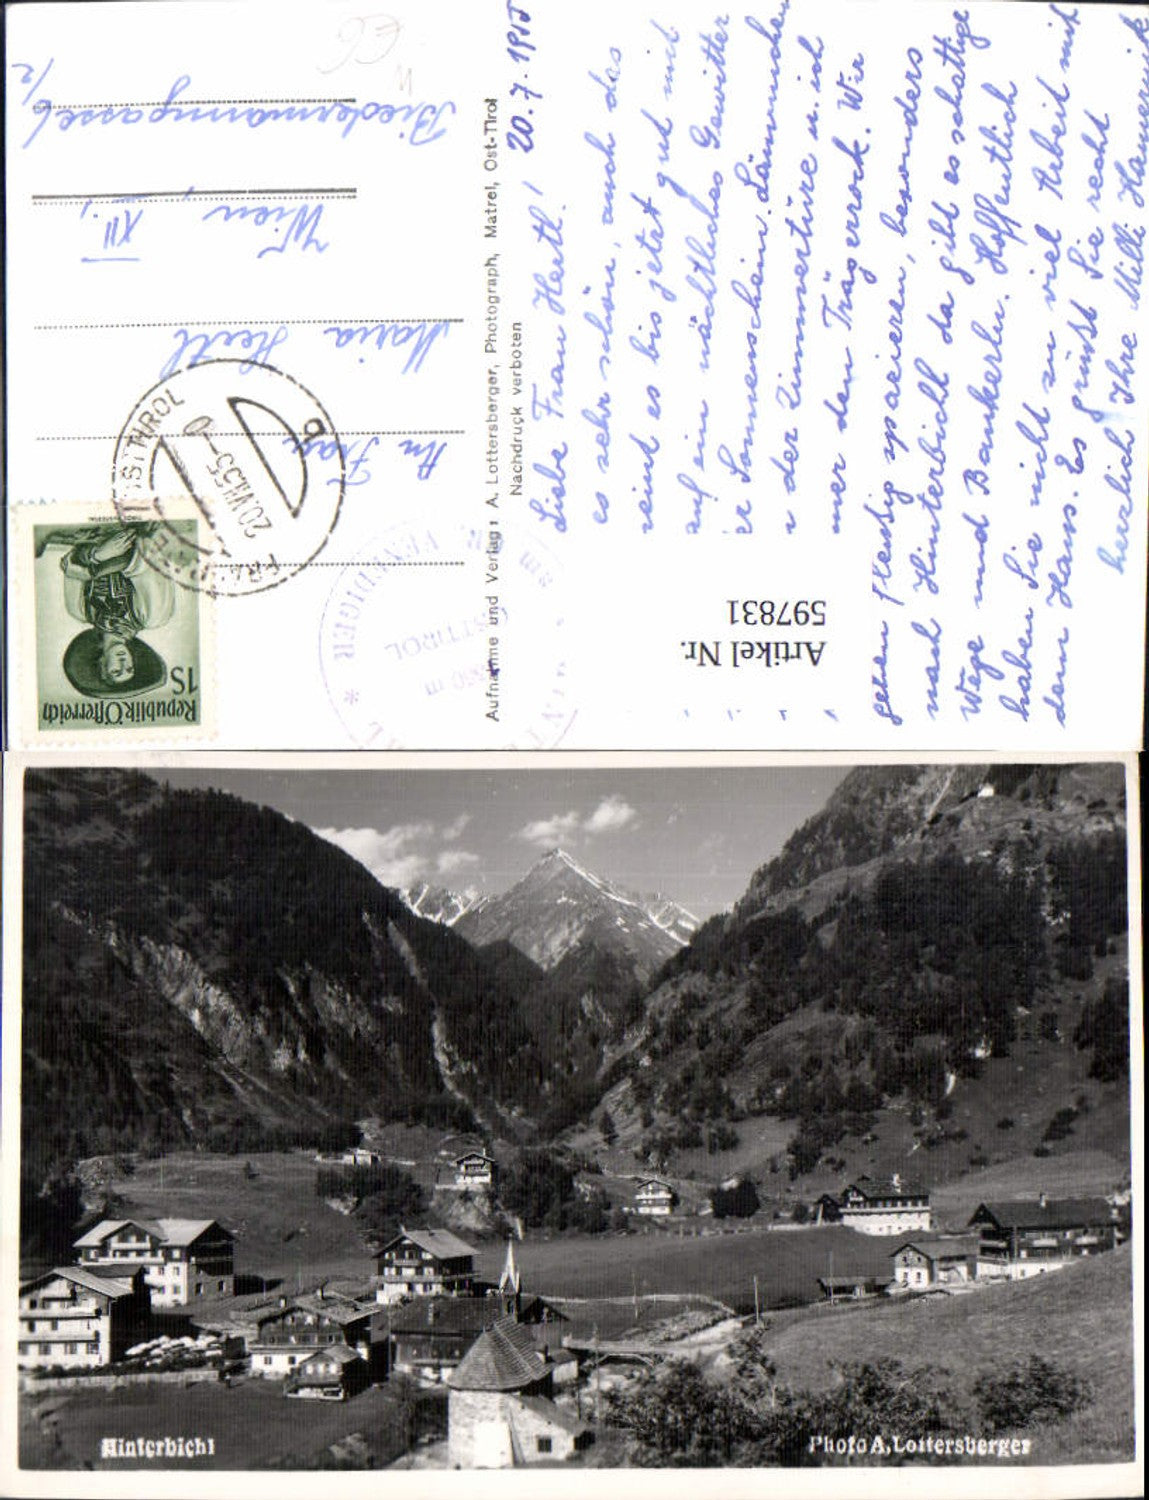 20.7.1955
Liebe Frau Hertl!
es sehr schön, auch das
reint es bis jetzt gut mit
auf ein nächtliches Gewitter
er Sonnenschein. Lämmchen
der Zimmertüre u. ich
mer den Trägerrock. Wir
gehen fleißig spazieren, besonders
nach Hinterbichl da gibt es schattige
Wege und Bankerln. Hoffentlich
haben Sie nicht zu viel Arbeit mit
dem Hans. Es grüßt Sie recht
herzlich Ihre Milli
Aufnahme und Verlag: A. Lottersberger, Photograph, Matrei, Ost-Tirol
Nachdruck verboten
An Frau
Maria Hertl
Wien
XII.,
Biedermanngasse 6
/2
Republik Österreich
1S
OSTTIROL
20.VII.55
b
VENEDIGER
OSTTIROL
Artikel Nr.
597831
Hinterbichl
Photo A. Lottersberger